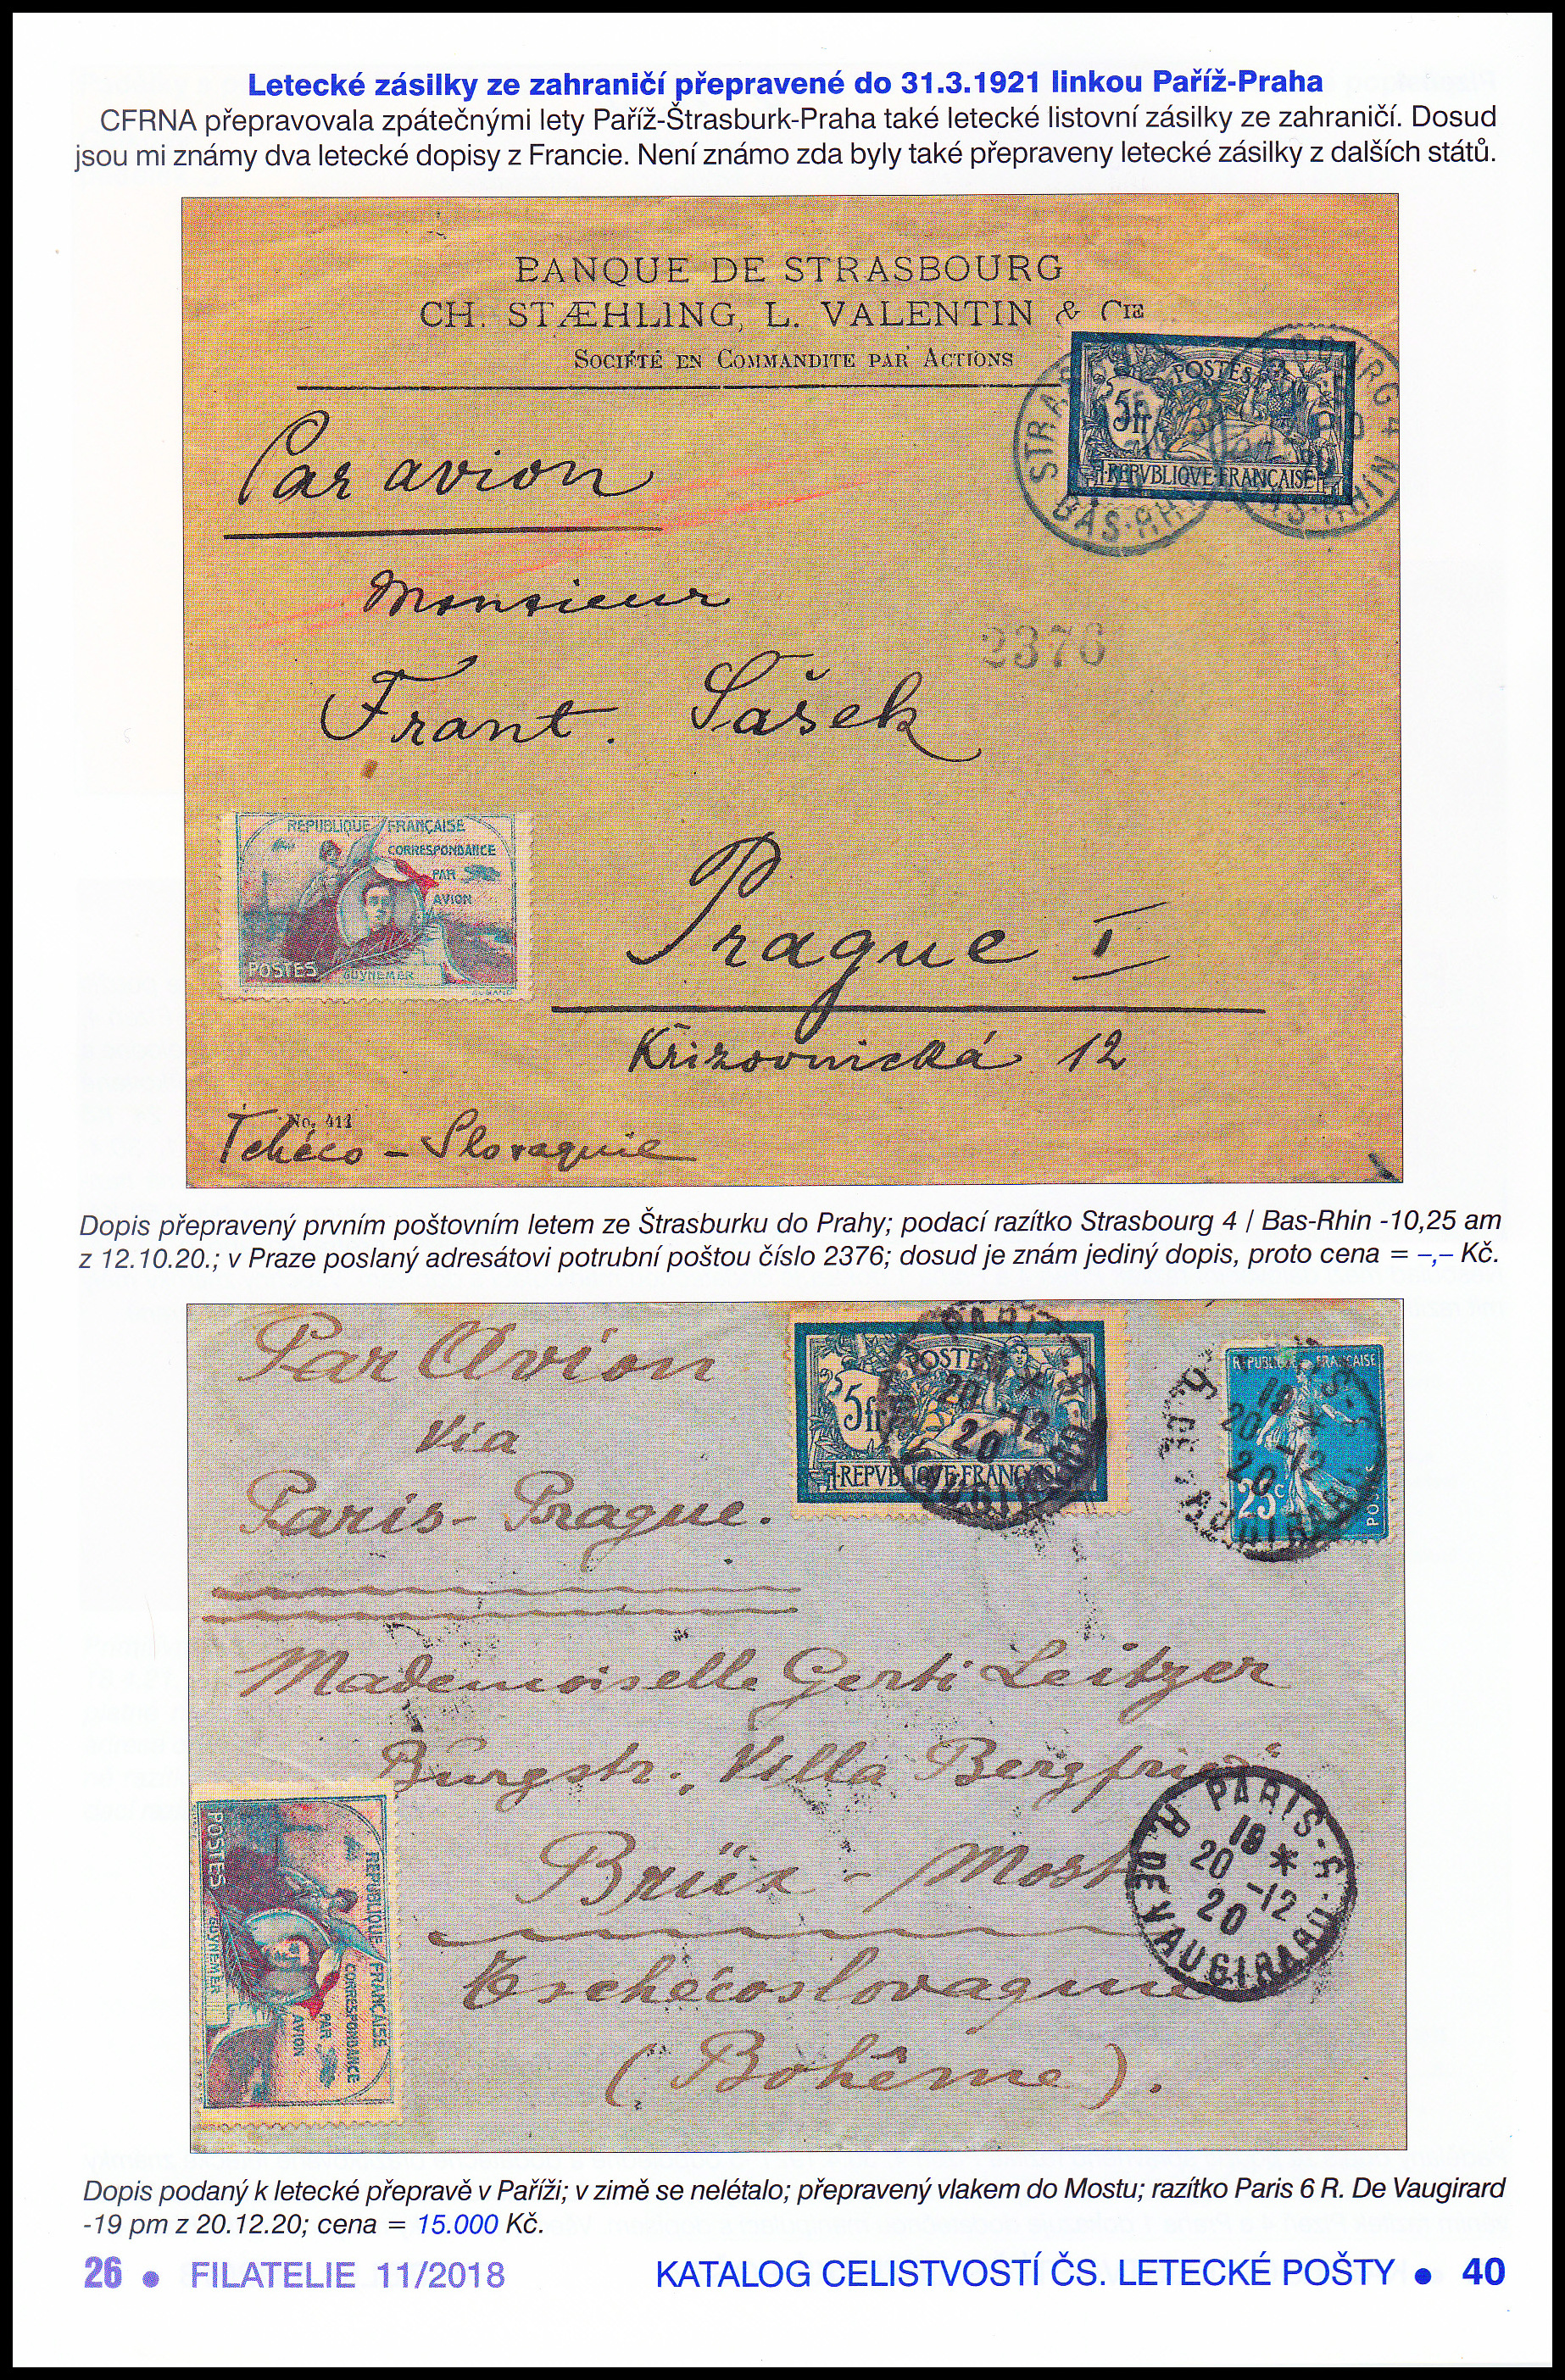 Letecké zásilky ze zahraničí přepravené do 31.3.1921 linkou Paříž-Praha
CFRNA přepravovala zpátečnými lety Paříž-Štrasburk-Praha také letecké listovní zásilky ze zahraničí. Dosud
jsou mi známy dva letecké dopisy z Francie. Není známo zda byly také přepraveny letecké zásilky z dalších států.
BANQUE DE STRASBOURG
CH. STÆHLING, L. VALENTIN & CIE
SOCIÉTÉ EN COMMANDITE PAR ACTIONS
POSTES
5fr
REPVBLIQVE FRANÇAISE
STRA
BAS-RH
BOURG 4
AS-RHIN
Par avion
Monsieur
2376
Frant. Šašek
REPUBLIQUE FRANÇAISE
CORRESPONDANCE
PAR
AVION
POSTES
GUYNEMER
Prague I
Křižovnická 12
No. 411
Tchéco-Slovaquie
Dopis přepravený prvním poštovním letem ze Štrasburku do Prahy; podací razítko Strasbourg 4 / Bas-Rhin -10,25 am
z 12.10.20.; v Praze poslaný adresátovi potrubní poštou číslo 2376; dosud je znám jediný dopis, proto cena = –,– Kč.
Par Avion
Via
Paris-Prague.
POSTES
5fr
REPVBLIQVE FRANÇAISE
PARIS
20 -12
20
REPUBLIQUE FRANÇAISE
19 *
20 -12
20
25c
POSTES
Mademoiselle Gerti Leitzer
Burgstr., Villa Bergfried
Brüx - Most
Tschécoslovaquie
(Bohême).
PARIS-6
19 *
20 -12
20
R. DE VAUGIRARD
POSTES
GUYNEMER
REPUBLIQUE FRANÇAISE
CORRESPONDANCE
PAR
AVION
Dopis podaný k letecké přepravě v Paříži; v zimě se nelétalo; přepravený vlakem do Mostu; razítko Paris 6 R. De Vaugirard
-19 pm z 20.12.20; cena = 15.000 Kč.
26 • FILATELIE 11/2018 KATALOG CELISTVOSTÍ ČS. LETECKÉ POŠTY • 40